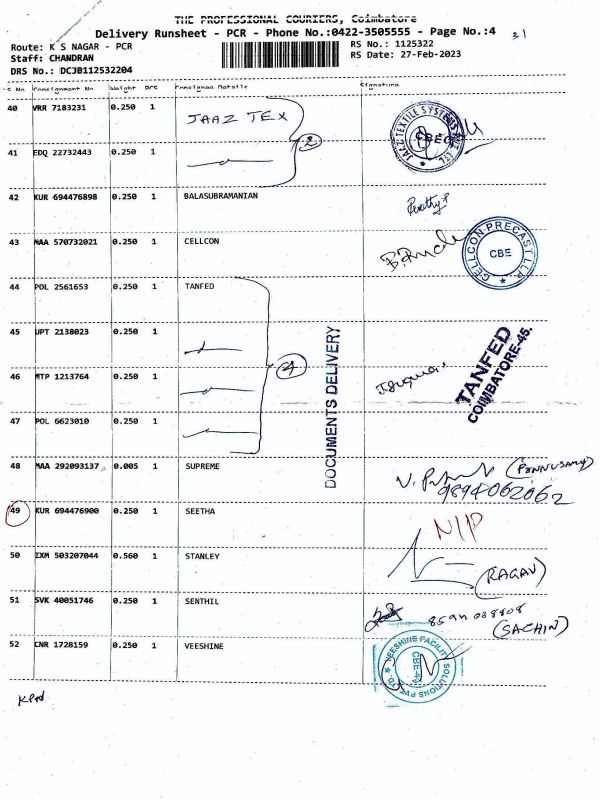 THE PROFESSIONAL COURIERS, Coimbatore
Delivery Runsheet - PCR - Phone No.:0422-3505555 - Page No.:4
Route: K S NAGAR - PCR
Staff: CHANDRAN
DRS No.: DCJB112532204
RS No.: 1125322
RS Date: 27-Feb-2023
S No Consignment No Weight PCS Consignee Details Signature
40 VRR 7183231 0.250 1 JAAZ TEX
41 EDQ 22732443 0.250 1
2
42 KUR 694476898 0.250 1 BALASUBRAMANIAN
43 MAA 570732021 0.250 1 CELLCON
CELLCON PRECAST LLP
CBE
44 POL 2561653 0.250 1 TANFED
45 UPT 2138023 0.250 1
46 MTP 1213764 0.250 1
4
47 POL 6623010 0.250 1
DOCUMENTS DELIVERY
TANFED
COIMBATORE-45.
48 MAA 292093137 0.005 1 SUPREME (PONNUSAMY)
9894062062
49 KUR 694476900 0.250 1 SEETHA N/P
50 IXM 503207044 0.560 1 STANLEY (RAGAV)
51 SVK 40051746 0.250 1 SENTHIL
(SACHIN)
52 CNR 1728159 0.250 1 VEESHINE
VEESHINE FACILITY SOLUTIONS PVT LTD.